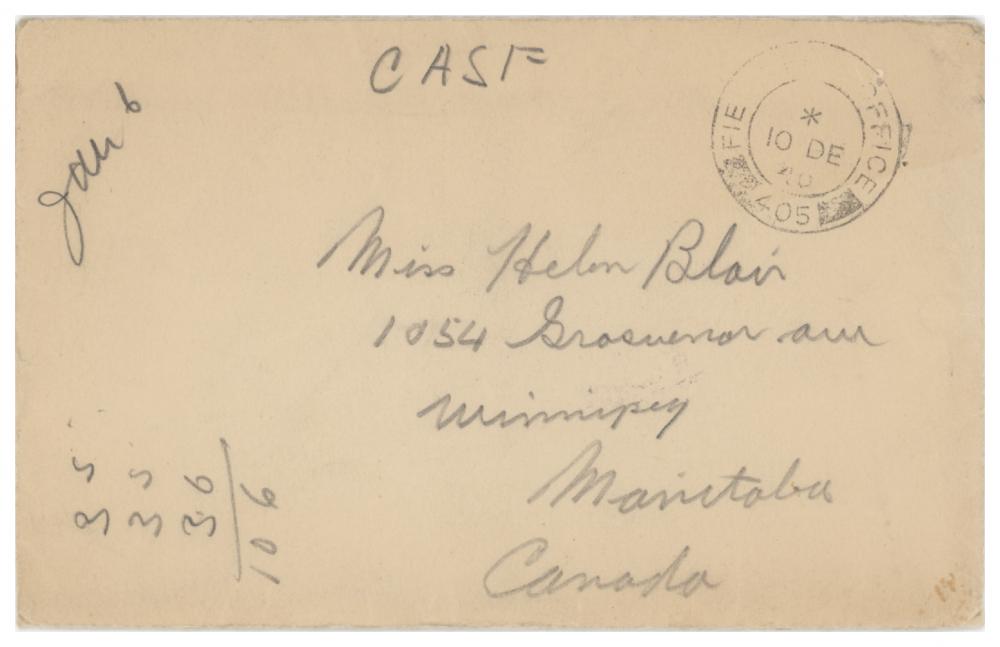 CASF
Jan 6
FIE OFFICE
*
10 DE
40
405
Miss Helen Blair
1054 Grosvenor ave
Winnipeg
Manitoba
Canada
35
35
36
106